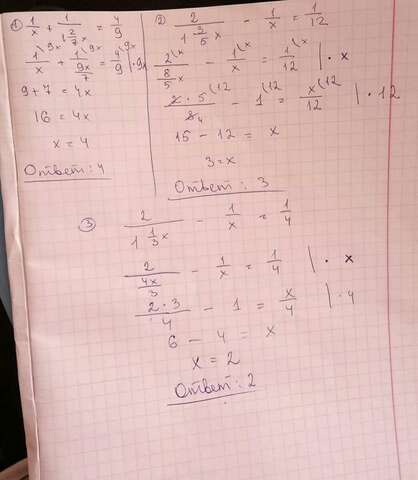 ① 1/x + 1/(1 2/7 x) = 4/9
1/x \9x + 1/(9x/7) \9x = 4/9 \9x | · 9x
9 + 7 = 4x
16 = 4x
x = 4
Ответ: 4
② 2/(1 3/5 x) - 1/x = 1/12
2/(8/5 x) \x - 1/x \x = 1/12 \x | · x
2 · 5/8 4 \12 - 1 \12 = x/12 \12 | · 12
15 - 12 = x
3 = x
Ответ: 3
③ 2/(1 1/3 x) - 1/x = 1/4
2/(4x/3) - 1/x = 1/4 | · x
2 · 3/4 - 1 = x/4 | · 4
6 - 4 = x
x = 2
Ответ: 2